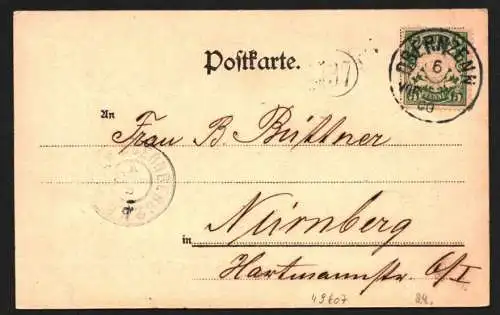 Postkarte.
OBERNZENN
6
VOR
00
5 PFENNIG 5
An
Frau B. Büttner
Nürnberg
in
Hartmannstr. 6/I
49607